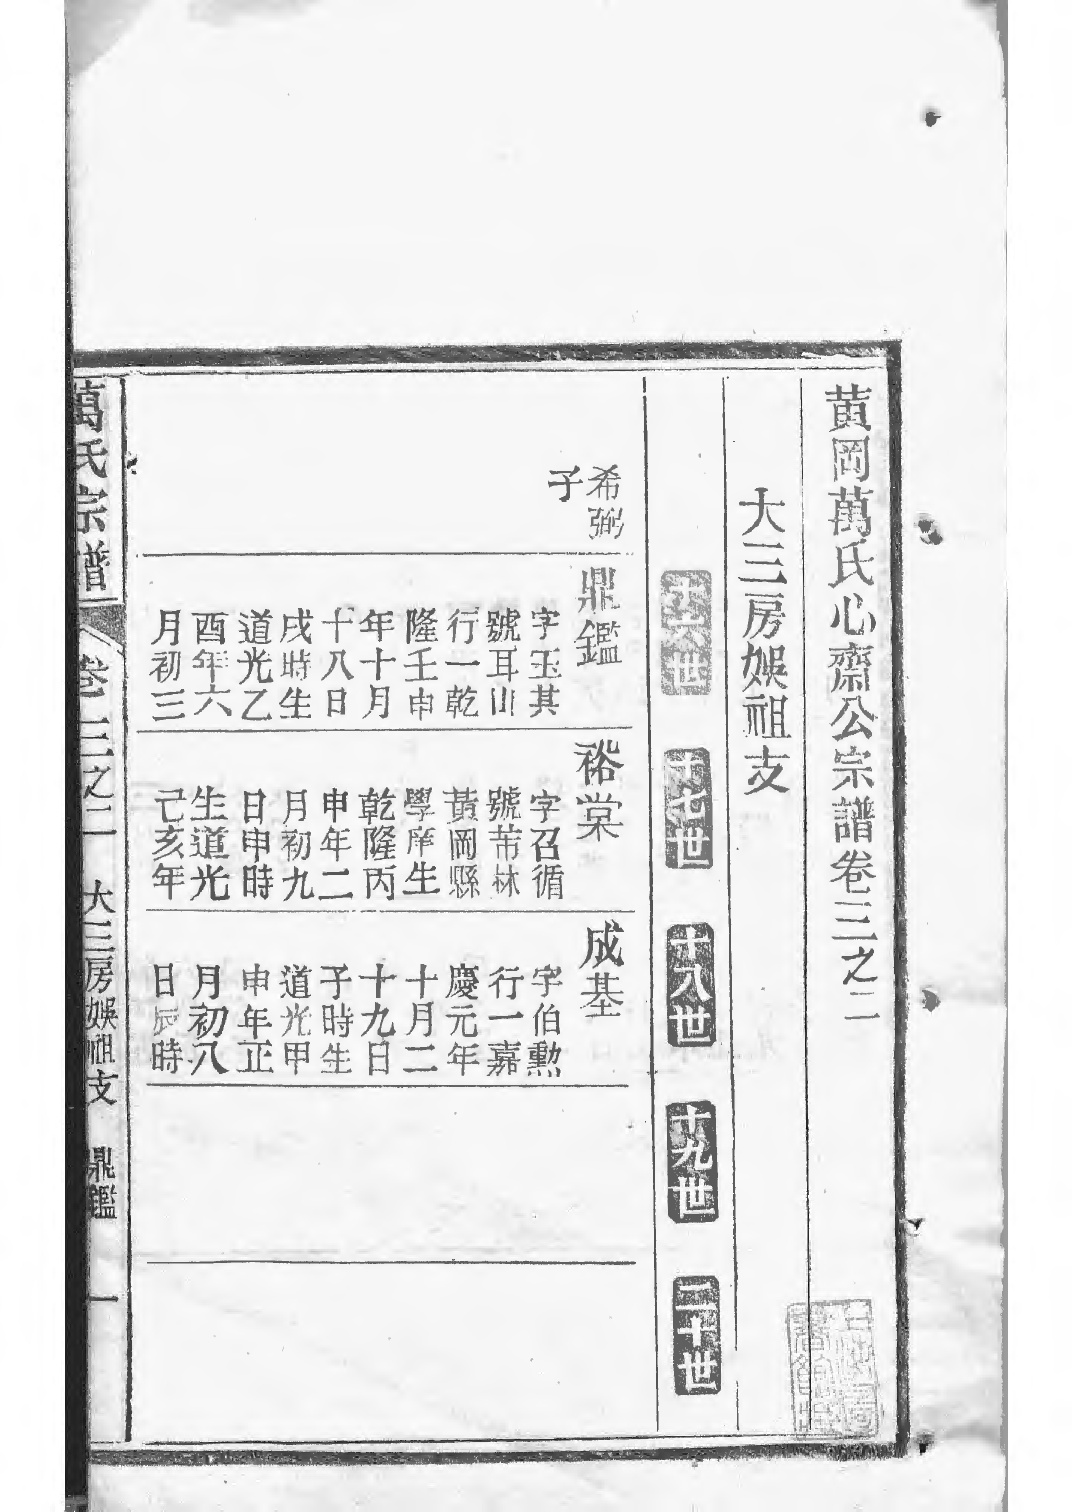 黄岡萬氏心齋公宗譜卷三之二
大三房娛祖支
十六世
十七世
十八世
十九世
二十世
希弼
子
鼎鑑
字玉其
號耳山
行一乾
隆壬申
年十月
十八日
戌時生
道光乙
酉年六
月初三
裕棠
字召循
號芾林
黃岡縣
學庠生
乾隆丙
申年二
月初九
日申時
生道光
己亥年
成基
字伯勲
行一嘉
慶元年
十月二
十九日
子時生
道光甲
申年正
月初八
日辰時
萬氏宗譜
卷三之二
大三房娛祖支
鼎鑑
一